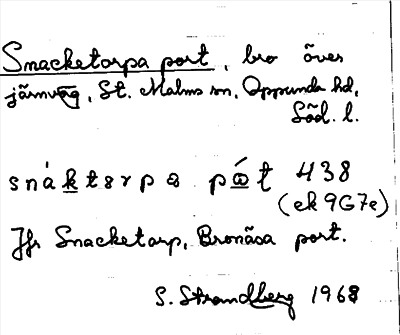 Snacketorpa port, bro över
järnväg, St. Malms sn, Oppunda hd,
Söd. l.
snák̲tərpa pó̲t 438
(ek 9G7e)
Jfr Snacketorp, Bronäsa port.
S. Strandberg 1968